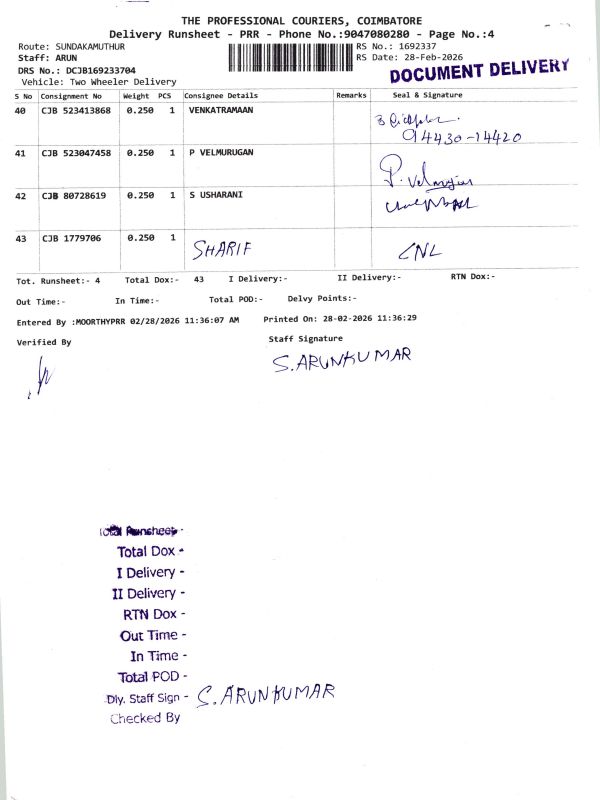 THE PROFESSIONAL COURIERS, COIMBATORE
Delivery Runsheet - PRR - Phone No.:9047080280 - Page No.:4
Route: SUNDAKAMUTHUR RS No.: 1692337
Staff: ARUN RS Date: 28-Feb-2026
DRS No.: DCJB169233704
DOCUMENT DELIVERY
Vehicle: Two Wheeler Delivery
S No Consignment No Weight PCS Consignee Details Remarks Seal & Signature
40 CJB 523413868 0.250 1 VENKATRAMAAN
94430-14420
41 CJB 523047458 0.250 1 P VELMURUGAN P. Velmurugan
42 CJB 80728619 0.250 1 S USHARANI
43 CJB 1779706 0.250 1 SHARIF CNL
Tot. Runsheet:- 4 Total Dox:- 43 I Delivery:- II Delivery:- RTN Dox:-
Out Time:- In Time:- Total POD:- Delvy Points:-
Entered By :MOORTHYPRR 02/28/2026 11:36:07 AM Printed On: 28-02-2026 11:36:29
Verified By Staff Signature
S. ARUNKUMAR
Total Runsheet -
Total Dox -
I Delivery -
II Delivery -
RTN Dox -
Out Time -
In Time -
Total POD -
Dly. Staff Sign - S. ARUNKUMAR
Checked By